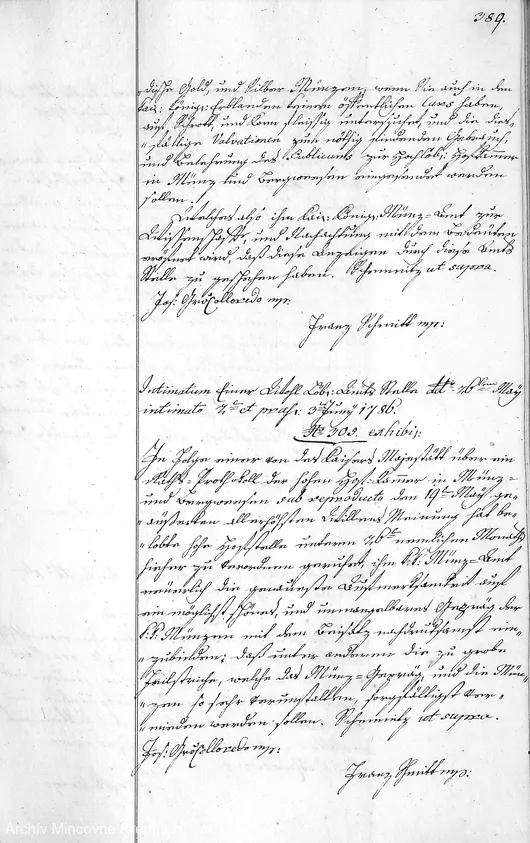 389.
diese Gold, und Silber Münzen, wenn Sie auch in den
kais: königl: Erblanden keinen öffentlichen Curs haben,
auf Schrott, und Korn fleissig untersuchet, und die dies„
„fällige Valvationen zum nöthig findenden Gebrauch,
und Belehrung des Publicums zur hochlöbl: Hofkamer
in Münz und Bergwesen eingesendet werden
sollen.
Welches also ihm kais: königl: Münz=Amt zur
Wissenschaft, und Nachachtung mit dem Bedeuten
erinnert wird, daß diese Anzeigen durch diese Amts
Stelle zu geschehen haben. Schemnitz ut supra.
Jos: Gr: Colloredo mp:
Franz Schmitt mp:
Intimatum Einer Wohl Löb: Amts Stelle ddto 26ten May
intimato 2do et praes: 3ten Juny 1786.
No 305. exhibi:
In Folge einer von des Kaisers Majestätt über ein
Raths=Prothokoll der hohen Hof=Kamer in Münz=
und Bergweesen sub reproducto den 19ten May ge„
„äußerten allerhöchsten Willens Meinung hat be„
„lobte hohe Hofstelle unterm 26ten nemlichen Monats
hieher zu verordnen geruhet, ihm k:k: Münz=Amt
neuerlich die genaueste Aufmerksamkeit auf
ein möglichst schönes, und unmangelbares Gepräg der
k:k: Münzen mit dem Beisatz nachdruksamst ein„
„zubinden: daß unter anderen die zu grobe
Feilstriche, welche das Münz=Gepräg, und die Mün„
„zen so sehr verunstalten, sorgfältigst ver„
„mieden werden sollen. Schemnitz ut supra.
Jos: Gr: Colloredo mp:
Franz Schmitt mp:
Archiv Mincovne